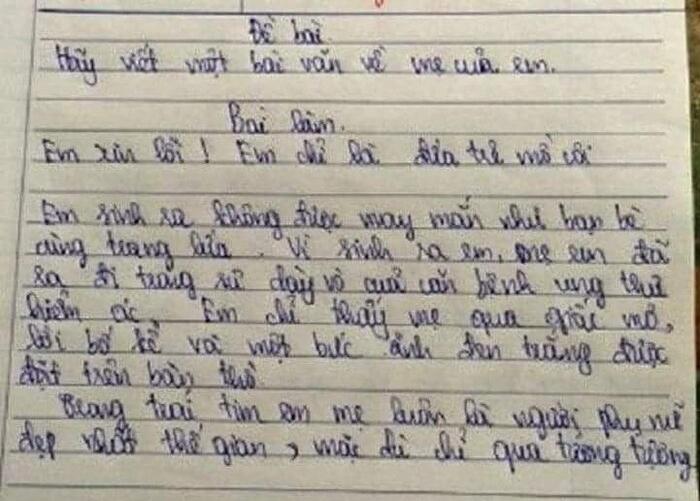 Đề bài
Hãy viết một bài văn về mẹ của em.
Bài làm.
Em xin lỗi ! Em chỉ là đứa trẻ mồ côi
Em sinh ra không được may mắn như bạn bè
cùng trang lứa. Vì sinh ra em, mẹ em đã
ra đi trong sự dày vò của căn bệnh ung thư
hiểm ác. Em chỉ thấy mẹ qua giấc mơ,
lời bố kể và một bức ảnh đen trắng được
đặt trên bàn thờ.
Trong trái tim em mẹ luôn là người phụ nữ
đẹp nhất thế gian, mặc dù chỉ qua tưởng tượng